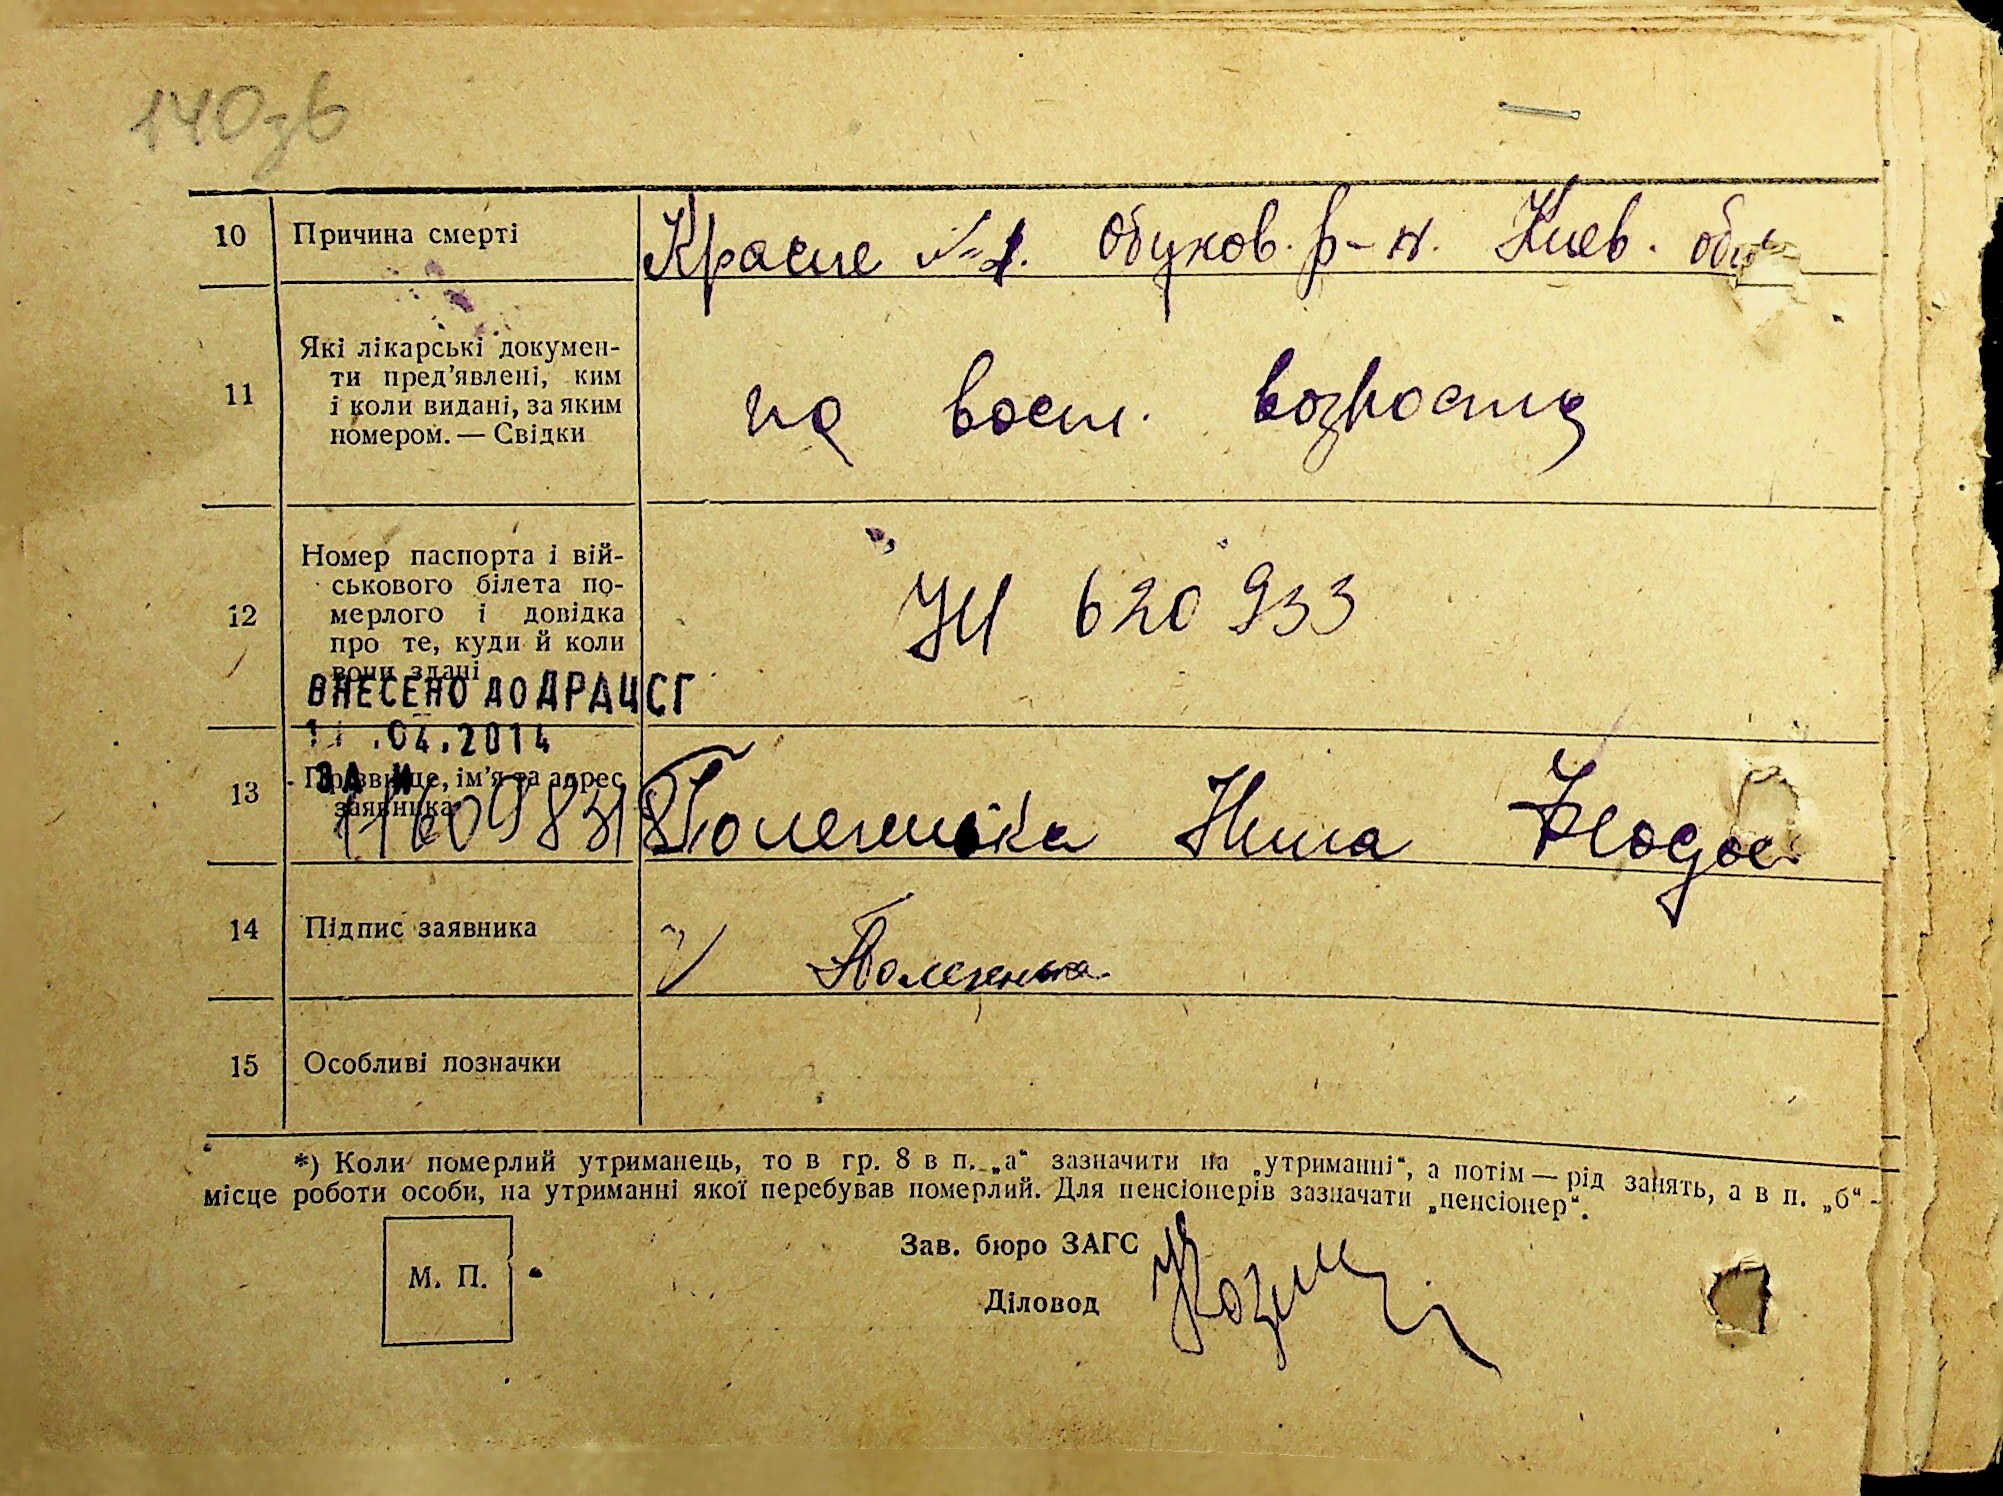 140зв
10 Причина смерті Красне №1. Обухов. р-н. Киев. обл
11 Які лікарські докумен-
ти пред’явлені, ким
і коли видані, за яким
номером. — Свідки
по восст. возраста
12 Номер паспорта і вій-
ськового білета по-
мерлого і довідка
про те, куди й коли
вони здані
620933
ВНЕСЕНО ДО ДРАЦСГ
.04.2014
ЗА №
13 Прізвище, ім’я та адрес
заявника
Нина
14 Підпис заявника
15 Особливі позначки
*) Коли померлий утриманець, то в гр. 8 в п. „а“ зазначити на „утриманні“, а потім — рід занять, а в п. „б“ -
місце роботи особи, на утриманні якої перебував померлий. Для пенсіонерів зазначати „пенсіонер“.
Зав. бюро ЗАГС
М. П.
Діловод